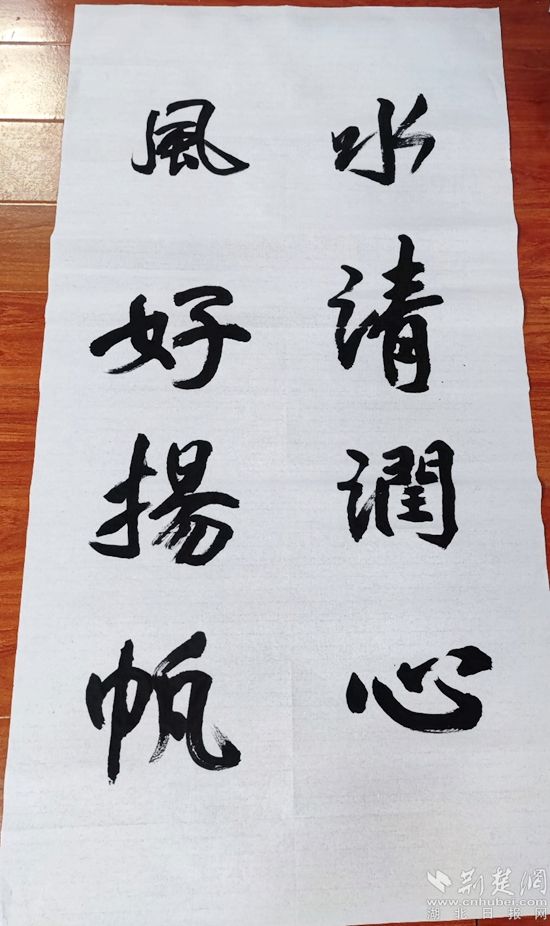 水清潤心
風好揚帆
荆楚網
www.cnhubei.com
湖北日报网